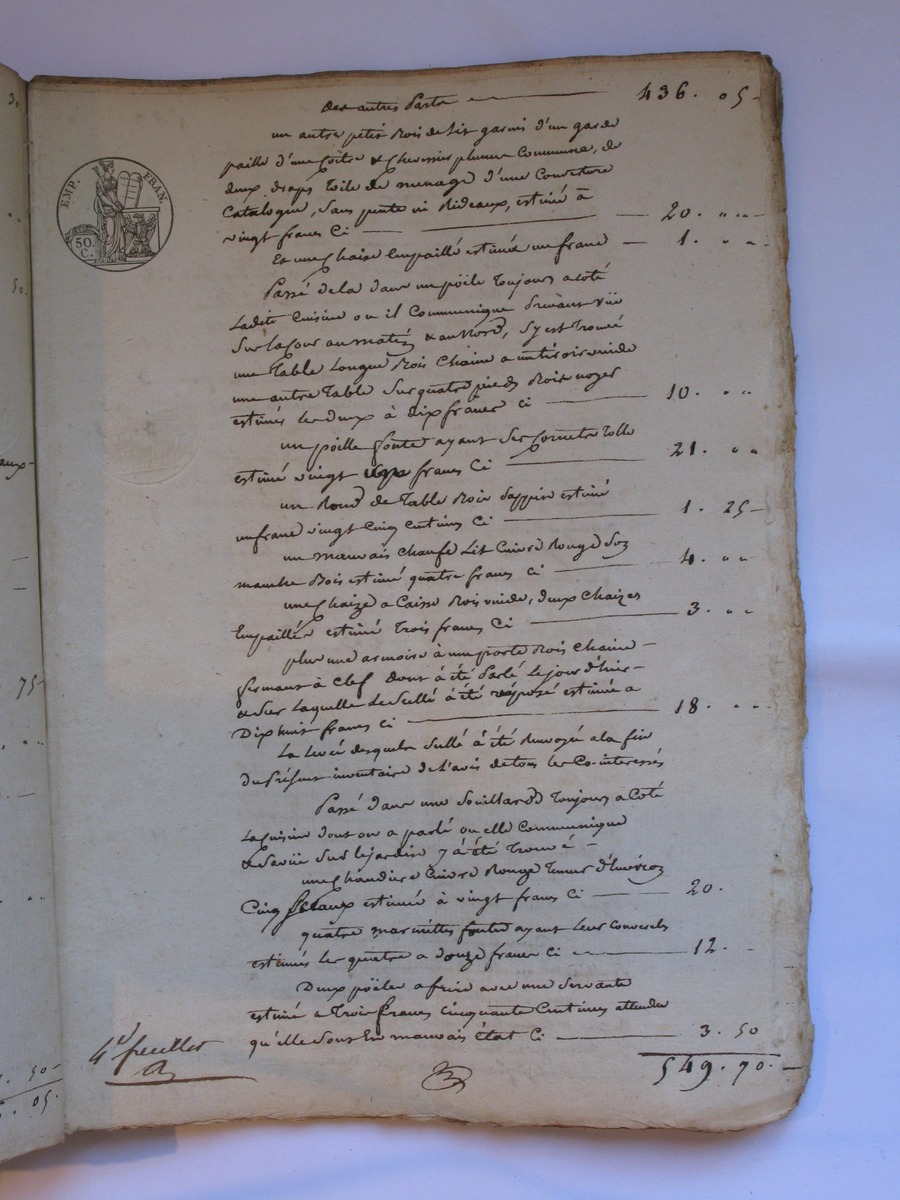 EMP. FRAN.
50. C.
Des autres Parts 436. 05
un autre petit Bois de Lit garni d'un garde
paille d'une Coitre & Chevessier plume Commune, de
deux draps toile de menage d'une Couverture
Catalogne, sans pente ni Rideaux, estimé à
vingt francs Ci 20. " "
Et une Chaise Empaillé estimée un franc 1. " "
Passé de la dans un poële toujours a coté
Ladite Cuisine ou il Communique Prenant vüe
Sur la Cour au matin & au Nord, s'y est trouvé
une Table Longue Bois Chaine a un tiroir vuide
une autre Table Sur quatre pieds Bois noyer
estimés les deux à dix francs Ci 10. " "
un poële fonte ayant ses Cornets Tolle
estimé vingt un francs Ci 21. " "
un Rond de Table Bois Sappin estimé
un franc vingt Cinq Centimes Ci 1. 25
un mauvais Chaufe Lit Cuivre Rouge Son
manche Bois estimé quatre francs Ci 4. " "
une Chaize a Caisse Bois vuide, deux Chaizes
Empaillées estimé Trois francs Ci 3. " "
plus une armoire à une porte Bois Chaine
fermant à Clef dont à été Parlé Le jour d'hier
& Sur Laquelle Le Scellé à été apposé estimée a
Dix huit francs Ci 18. " "
La Levée desquels Scellé à été Renvoyée a la fin
du Présent inventaire de L'avis de tous les Co-interessés
Passé dans une Souillarde Toujours a Coté
La Cuisine dont on a parlé ou elle Communique
& Savüe Sur le jardin y à été Trouvé
une Chaudiere Cuivre Rouge Teneur d'Environ
Cinq Seaux estimée à vingt francs Ci 20.
quatre marmittes fonte ayant Leur Couvercles
estimés Les quatre a douze francs Ci 12.
Deux poëles a frire avec une Servante
estimé a Trois francs Cinquante Centimes attendu
qu'elle Sont En mauvais état Ci 3. 50
549. 70.
4e feuillet